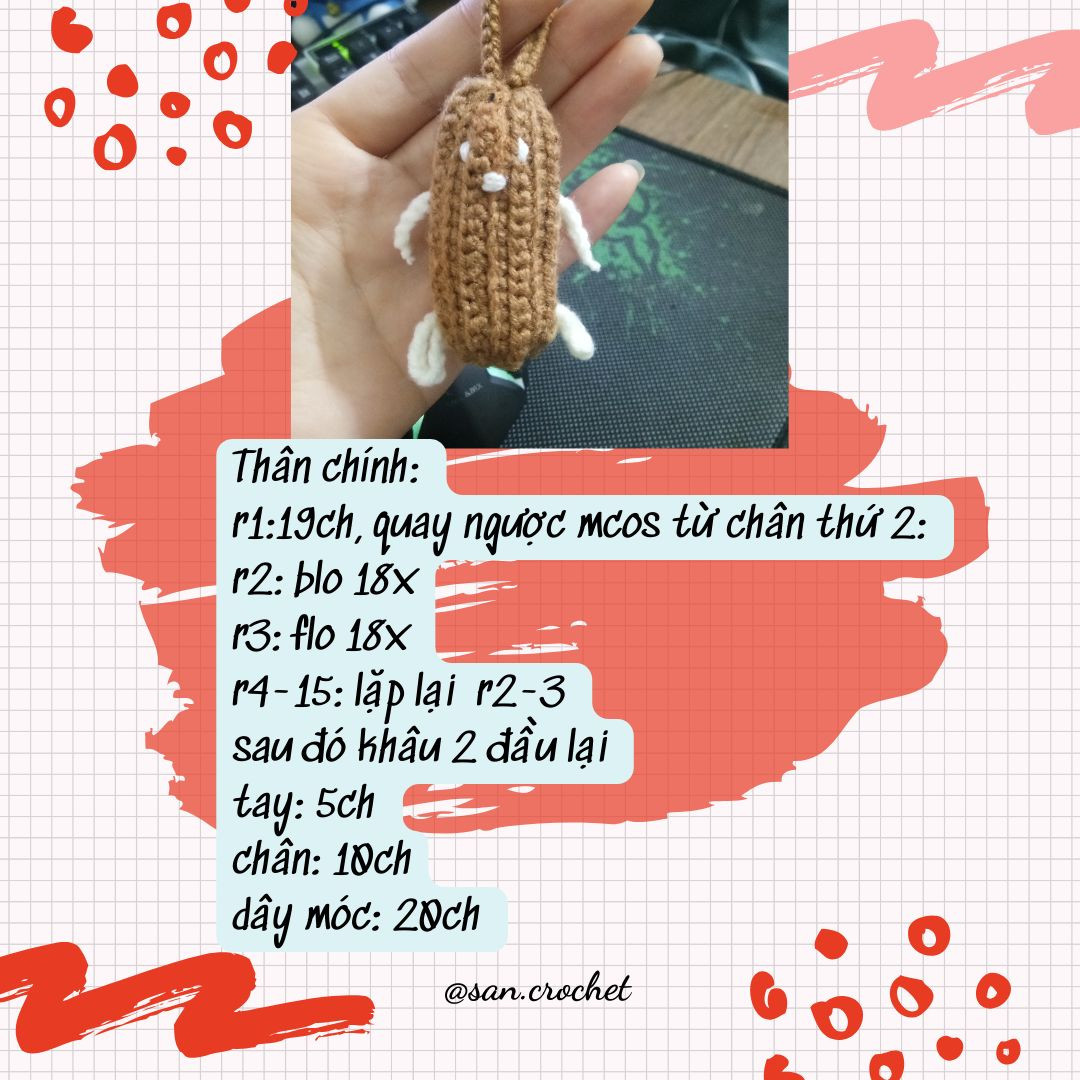 Thân chính:
r1:19ch, quay ngược mcos từ chân thứ 2:
r2: blo 18x
r3: flo 18x
r4-15: lặp lại r2-3
sau đó khâu 2 đầu lại
tay: 5ch
chân: 10ch
dây móc: 20ch
@san.crochet